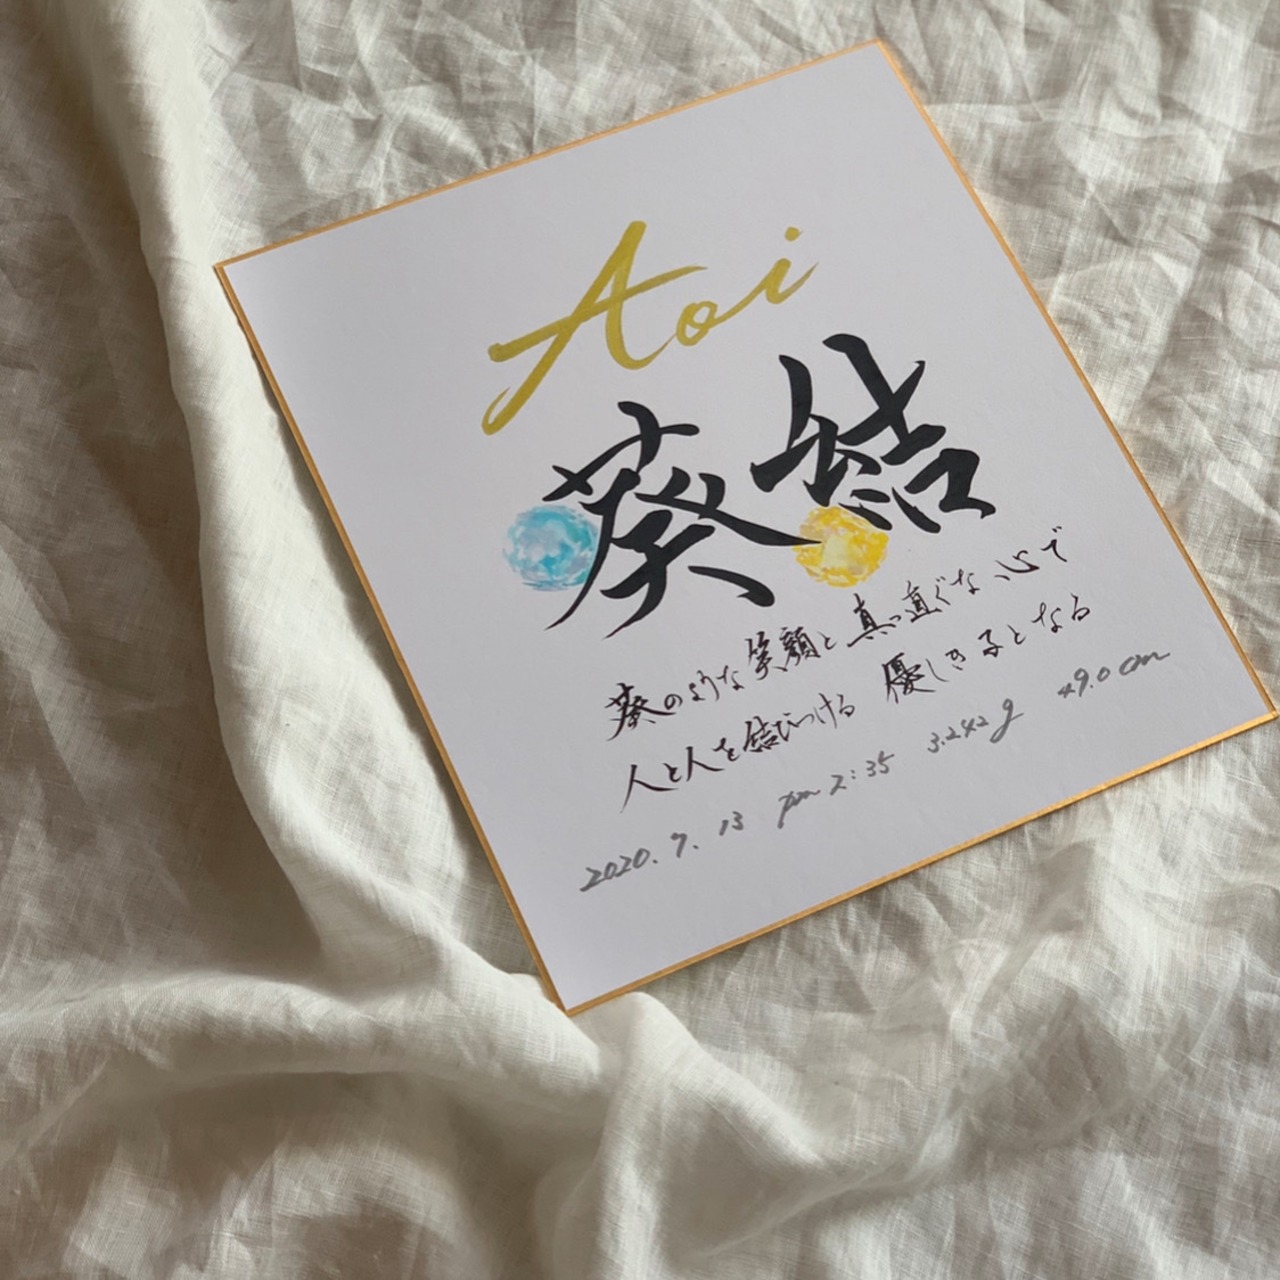 Aoi
葵結
葵のような笑顔と真っ直ぐな心で
人と人を結びつける 優しき子となる
2020.7.13 pm 2:35 3.242g 49.0cm